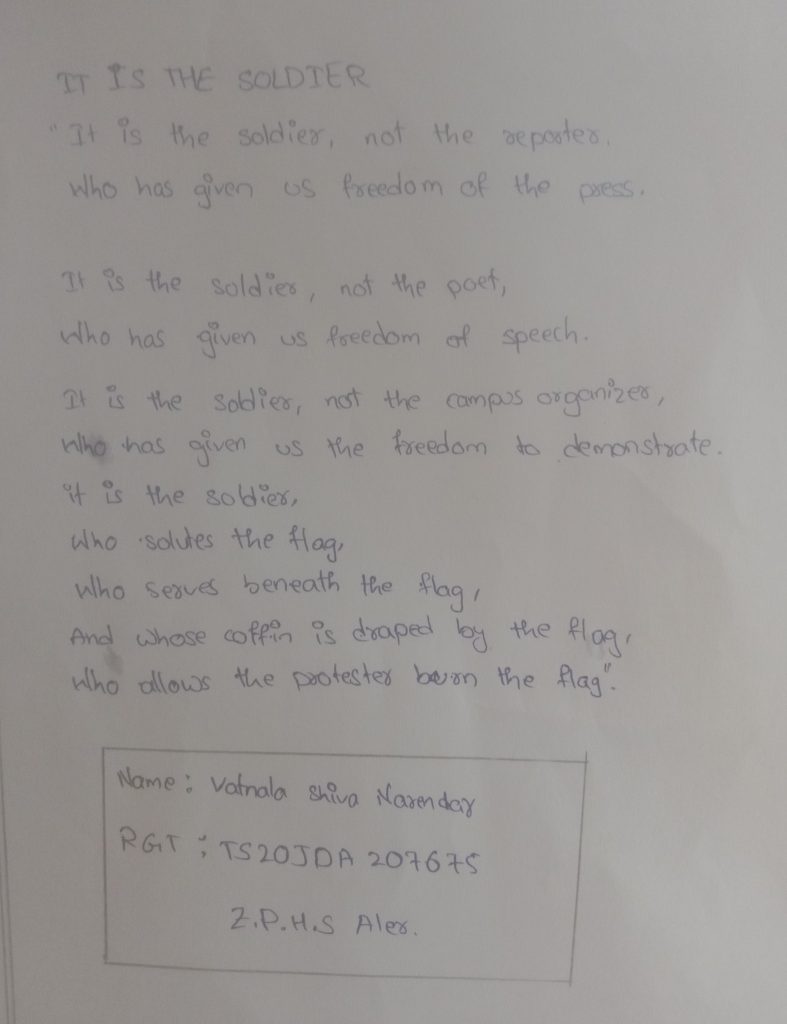 IT IS THE SOLDIER
"It is the soldier, not the reporter,
Who has given us freedom of the press.
It is the soldier, not the poet,
Who has given us freedom of speech.
It is the soldier, not the campus organizer,
Who has given us the freedom to demonstrate.
it is the soldier,
Who salutes the flag,
Who serves beneath the flag,
And whose coffin is draped by the flag,
Who allows the protester burn the flag".
Name: Vatnala Shiva Narendar
RGT : TS20JDA 207675
Z.P.H.S Aler.